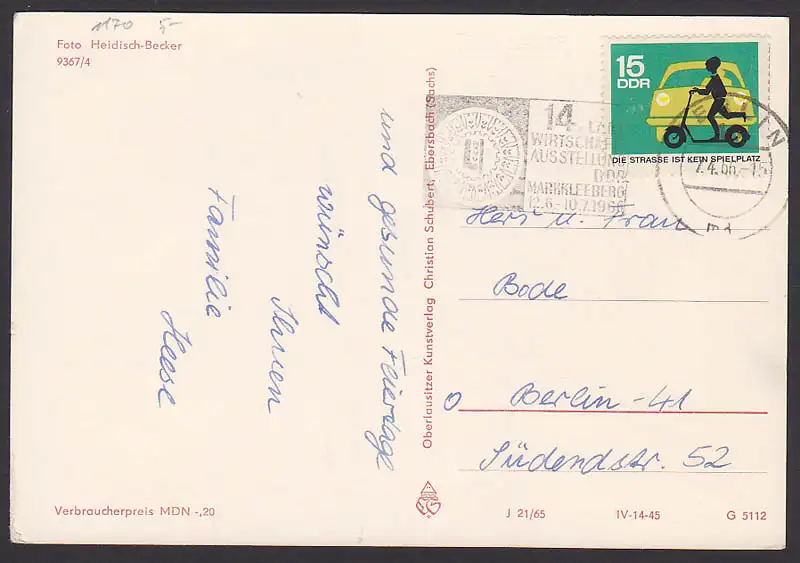 1170 5-
Foto Heidisch-Becker
9367/4
und gesunde Feiertage
wünscht
Ihnen
Familie
Heese
Verbraucherpreis MDN -,20
Oberlausitzer Kunstverlag Christian Schubert, Ebersbach (Sachs)
15
DDR
DIE STRASSE IST KEIN SPIELPLATZ
14.
WIRTSCHAFTS
AUSSTELLUNG
DDR
MARKKLEEBERG
12.6.-10.7.1966
BERLIN
7.4.66-15
Herr u. Frau
Bode
O Berlin-41
Südendstr. 52
J 21/65 IV-14-45 G 5112